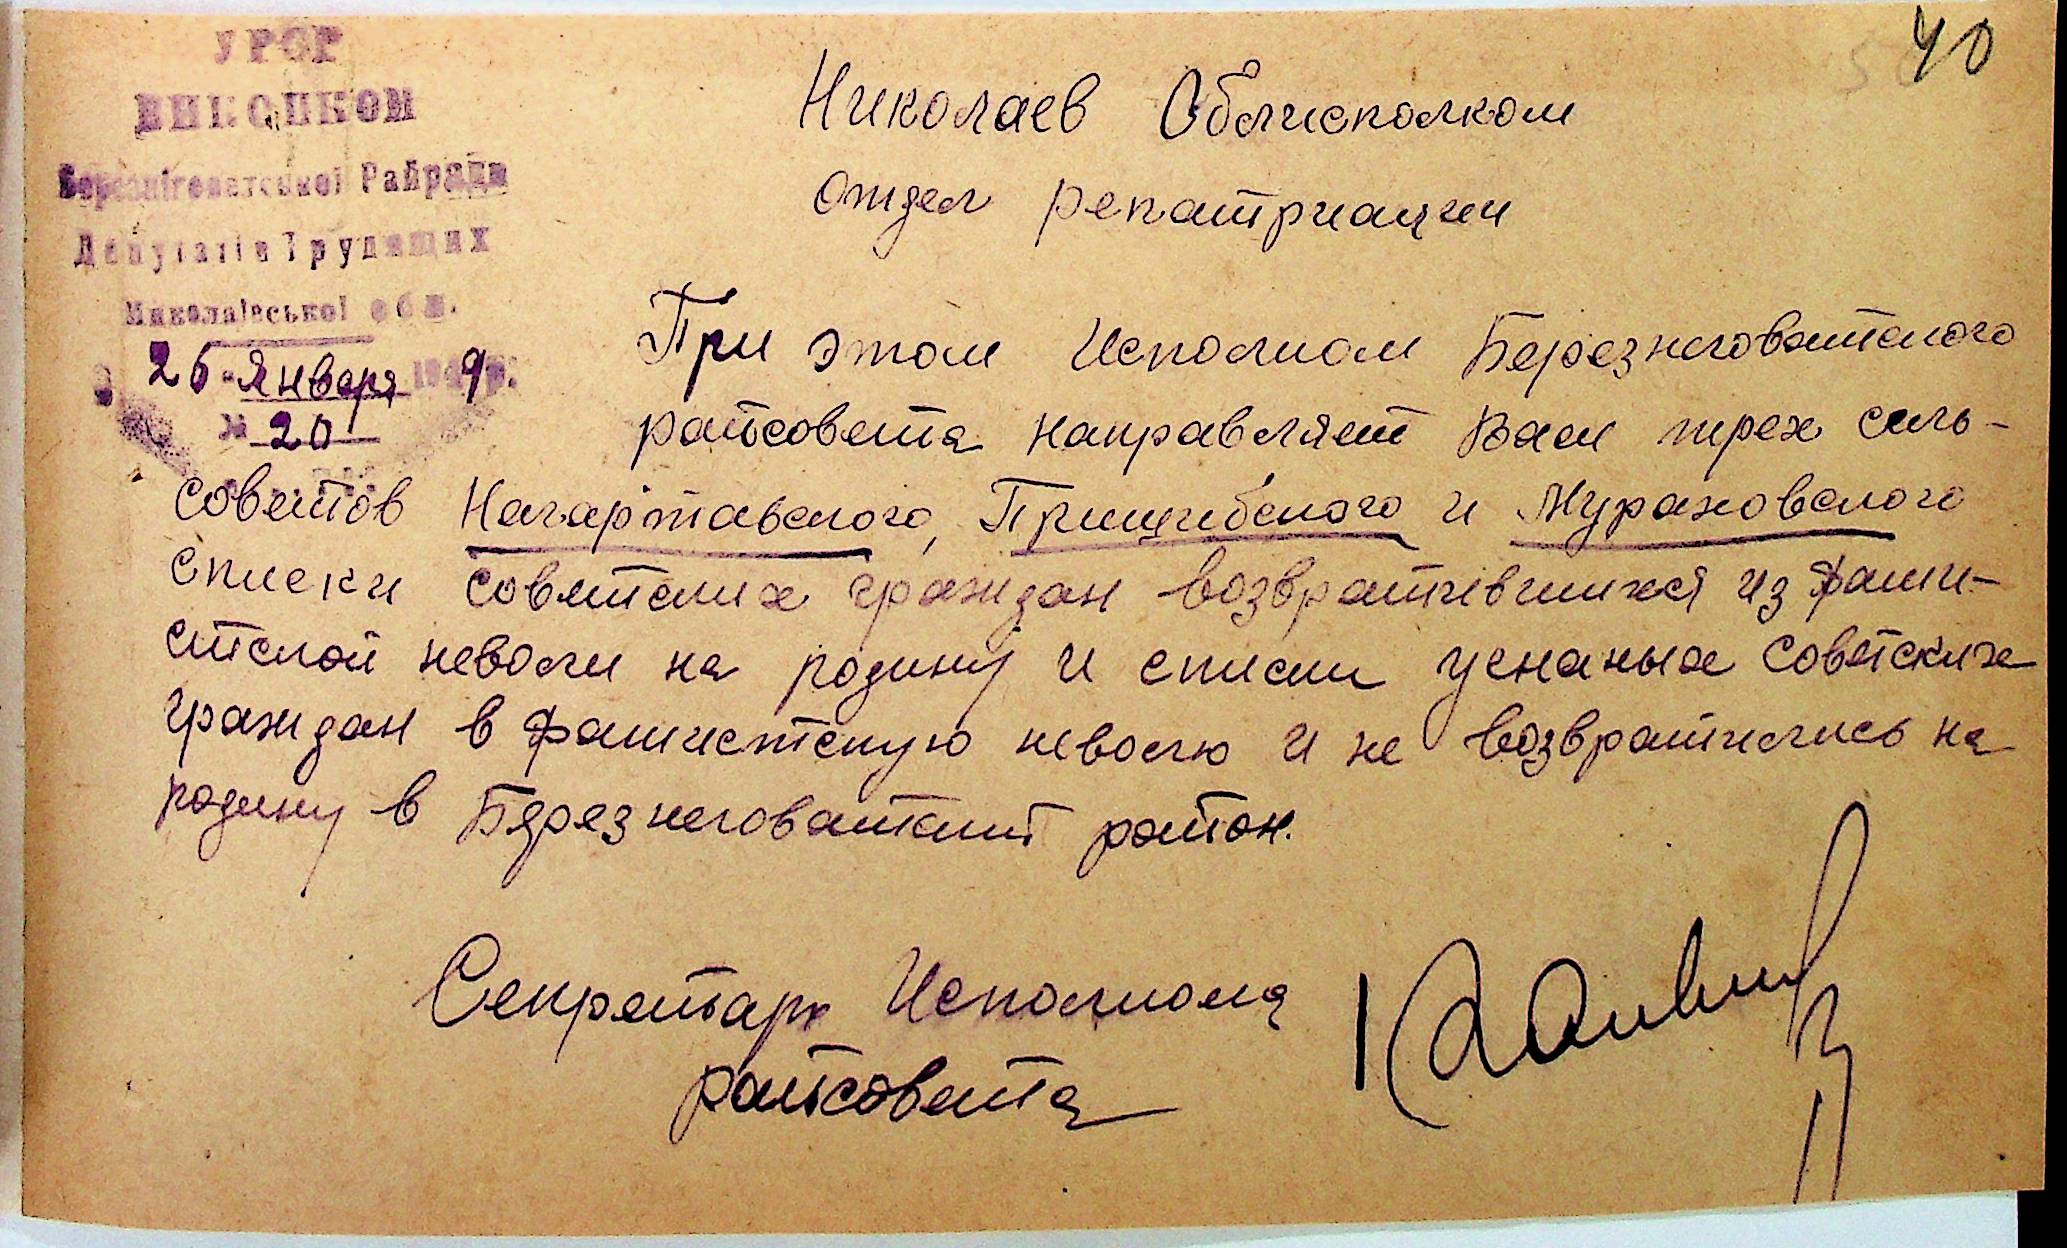 40
УРСР
ВИКОНКОМ
Березнігуватської Райради
Депутатів Трудящих
Миколаївської обл.
26 Января 1949 р.
№ 20
Николаев Облисполком
отдел репатриации
При этом Исполком Березнеговатского
райсовета направляет Вам трех сель-
советов Нагартавского, Пришибского и Мураховского
списки советских граждан возвратившихся из фаши-
стской неволи на родину и списки уснаных советских
граждан в фашистскую неволю и не возвратились на
родину в Березнеговатский район.
Секретарь Исполкома
райсовета